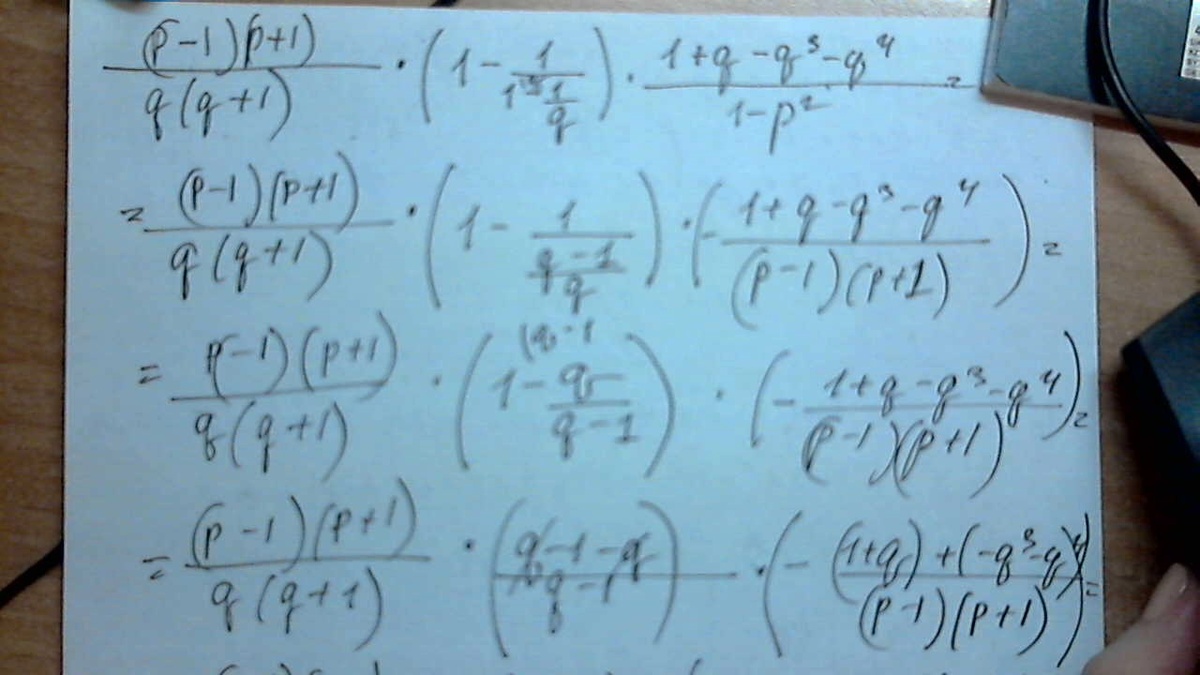 (p-1)(p+1) / q(q+1) · (1 - 1 / (1 - 1/q)) · (1+q-q³-q⁴) / (1-p²) =
= (p-1)(p+1) / q(q+1) · (1 - 1 / ((q-1)/q)) · (- (1+q-q³-q⁴) / (p-1)(p+1)) =
= (p-1)(p+1) / q(q+1) · (1 - q / (q-1)) · (- (1+q-q³-q⁴) / (p-1)(p+1)) =
= (p-1)(p+1) / q(q+1) · ((q-1-q) / (q-1)) · (- ((1+q)+(-q³-q⁴)) / (p-1)(p+1)) =